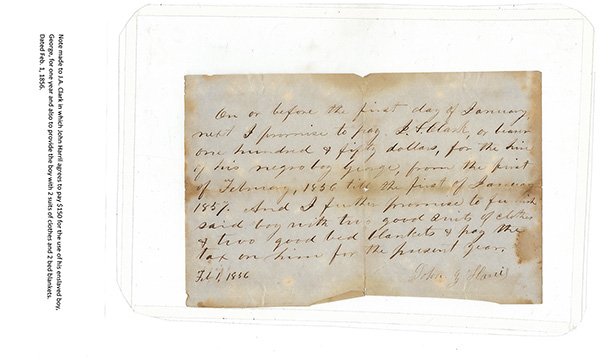 Note made to J.A. Clark in which John Harril agrees to pay $150 for the use of his enslaved boy,
George, for one year and also to provide the boy with 2 suits of clothes and 2 bed blankets.
Dated Feb. 1, 1856.
On or before the first day of January
next I promise to pay Clark, or bearer
one hundred & fifty dollars, for the hire
of his negro boy George, from the first
of February, 1856 till the first of January
1857. And I further promise to furnish
said boy with two good suits of clothes
& two good bed blankets & pay the
tax on him for the present year.
Feb 1, 1856
John